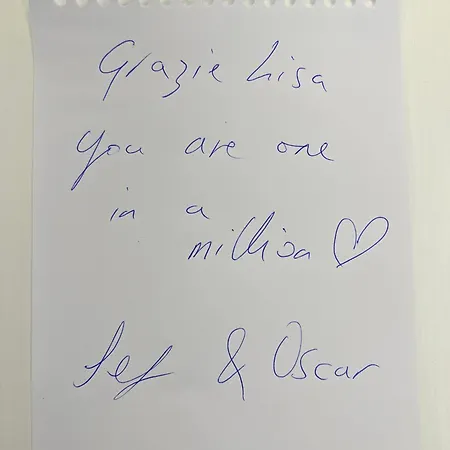 Grazie Lisa
you are one
in a
million ♡
Sef & Oscar